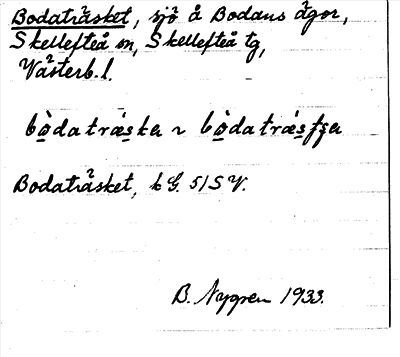 Bodaträsket, sjö å Bodans ägor,
Skellefteå sn, Skellefteå tg,
Västerb. l.
bòdatrǽska ~ bòdatrǽsʃa
Bodaträsket, k G. 51 S V.
B. Nygren 1933.